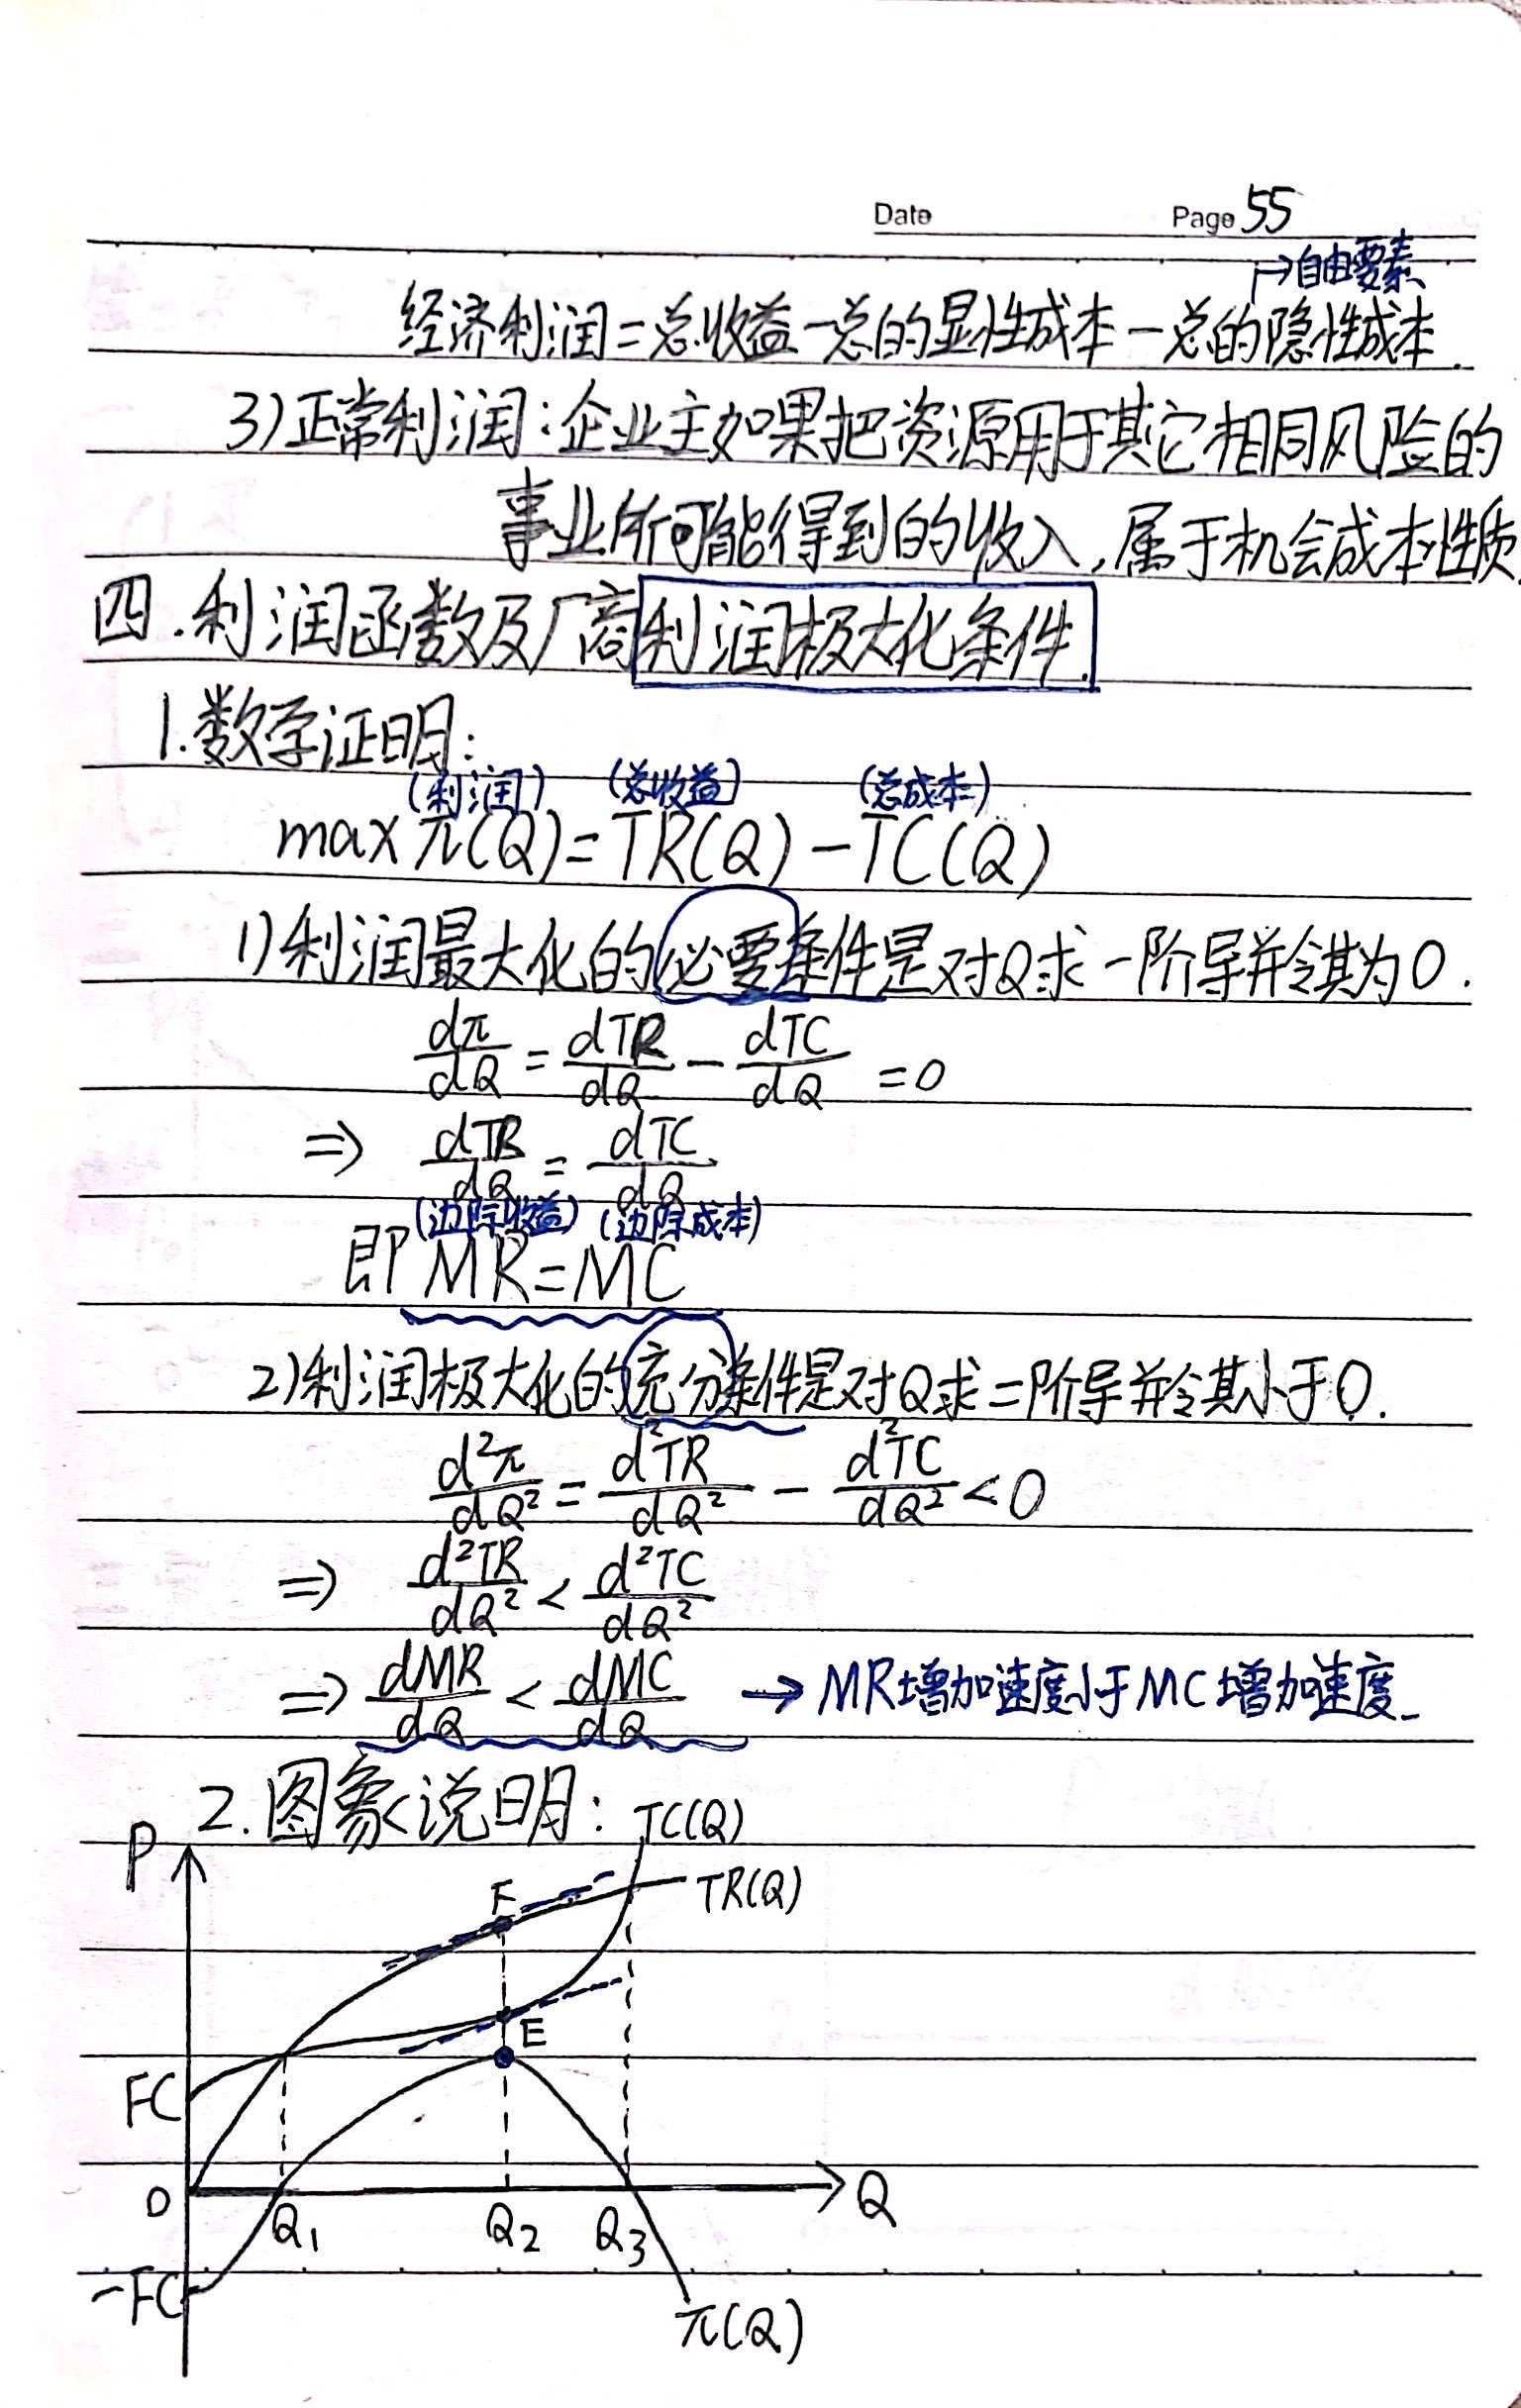 Date Page 55
→自由要素
经济利润=总收益-总的显性成本-总的隐性成本.
3)正常利润:企业主如果把资源用于其它相同风险的
事业所可能得到的收入,属于机会成本性质.
四.利润函数及厂商利润极大化条件.
1.数学证明:
(利润) (总收益) (总成本)
max π(Q)=TR(Q)-TC(Q)
1)利润最大化的必要条件是对Q求一阶导并令其为0.
dπ/dQ = dTR/dQ - dTC/dQ =0
⇒ dTR/dQ = dTC/dQ
(边际收益) (边际成本)
即MR=MC
2)利润极大化的充分条件是对Q求二阶导并令其小于0.
d²π/dQ² = d²TR/dQ² - d²TC/dQ² <0
⇒ d²TR/dQ² < d²TC/dQ²
⇒ dMR/dQ < dMC/dQ → MR增加速度小于MC增加速度
2.图象说明:
TC(Q)
P
TR(Q)
F
E
FC
0
Q
Q₁ Q₂ Q₃
-FC
π(Q)